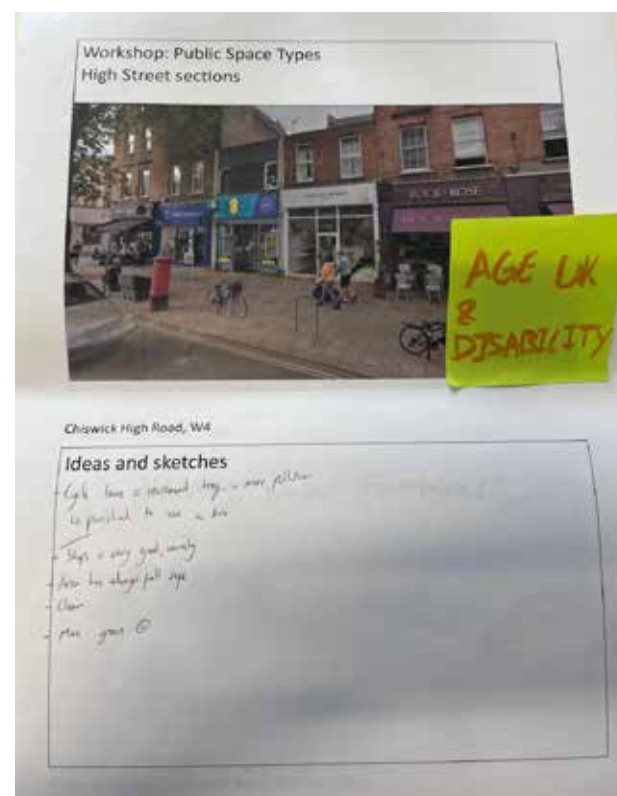 Workshop: Public Space Types
High Street sections
AGE UK
&
DISABILITY
Chiswick High Road, W4
Ideas and sketches
- Cycle lane = increased - more pollution
to use a
- Shops = very good, variety
- Area has always felt safe
- Clean
- More green